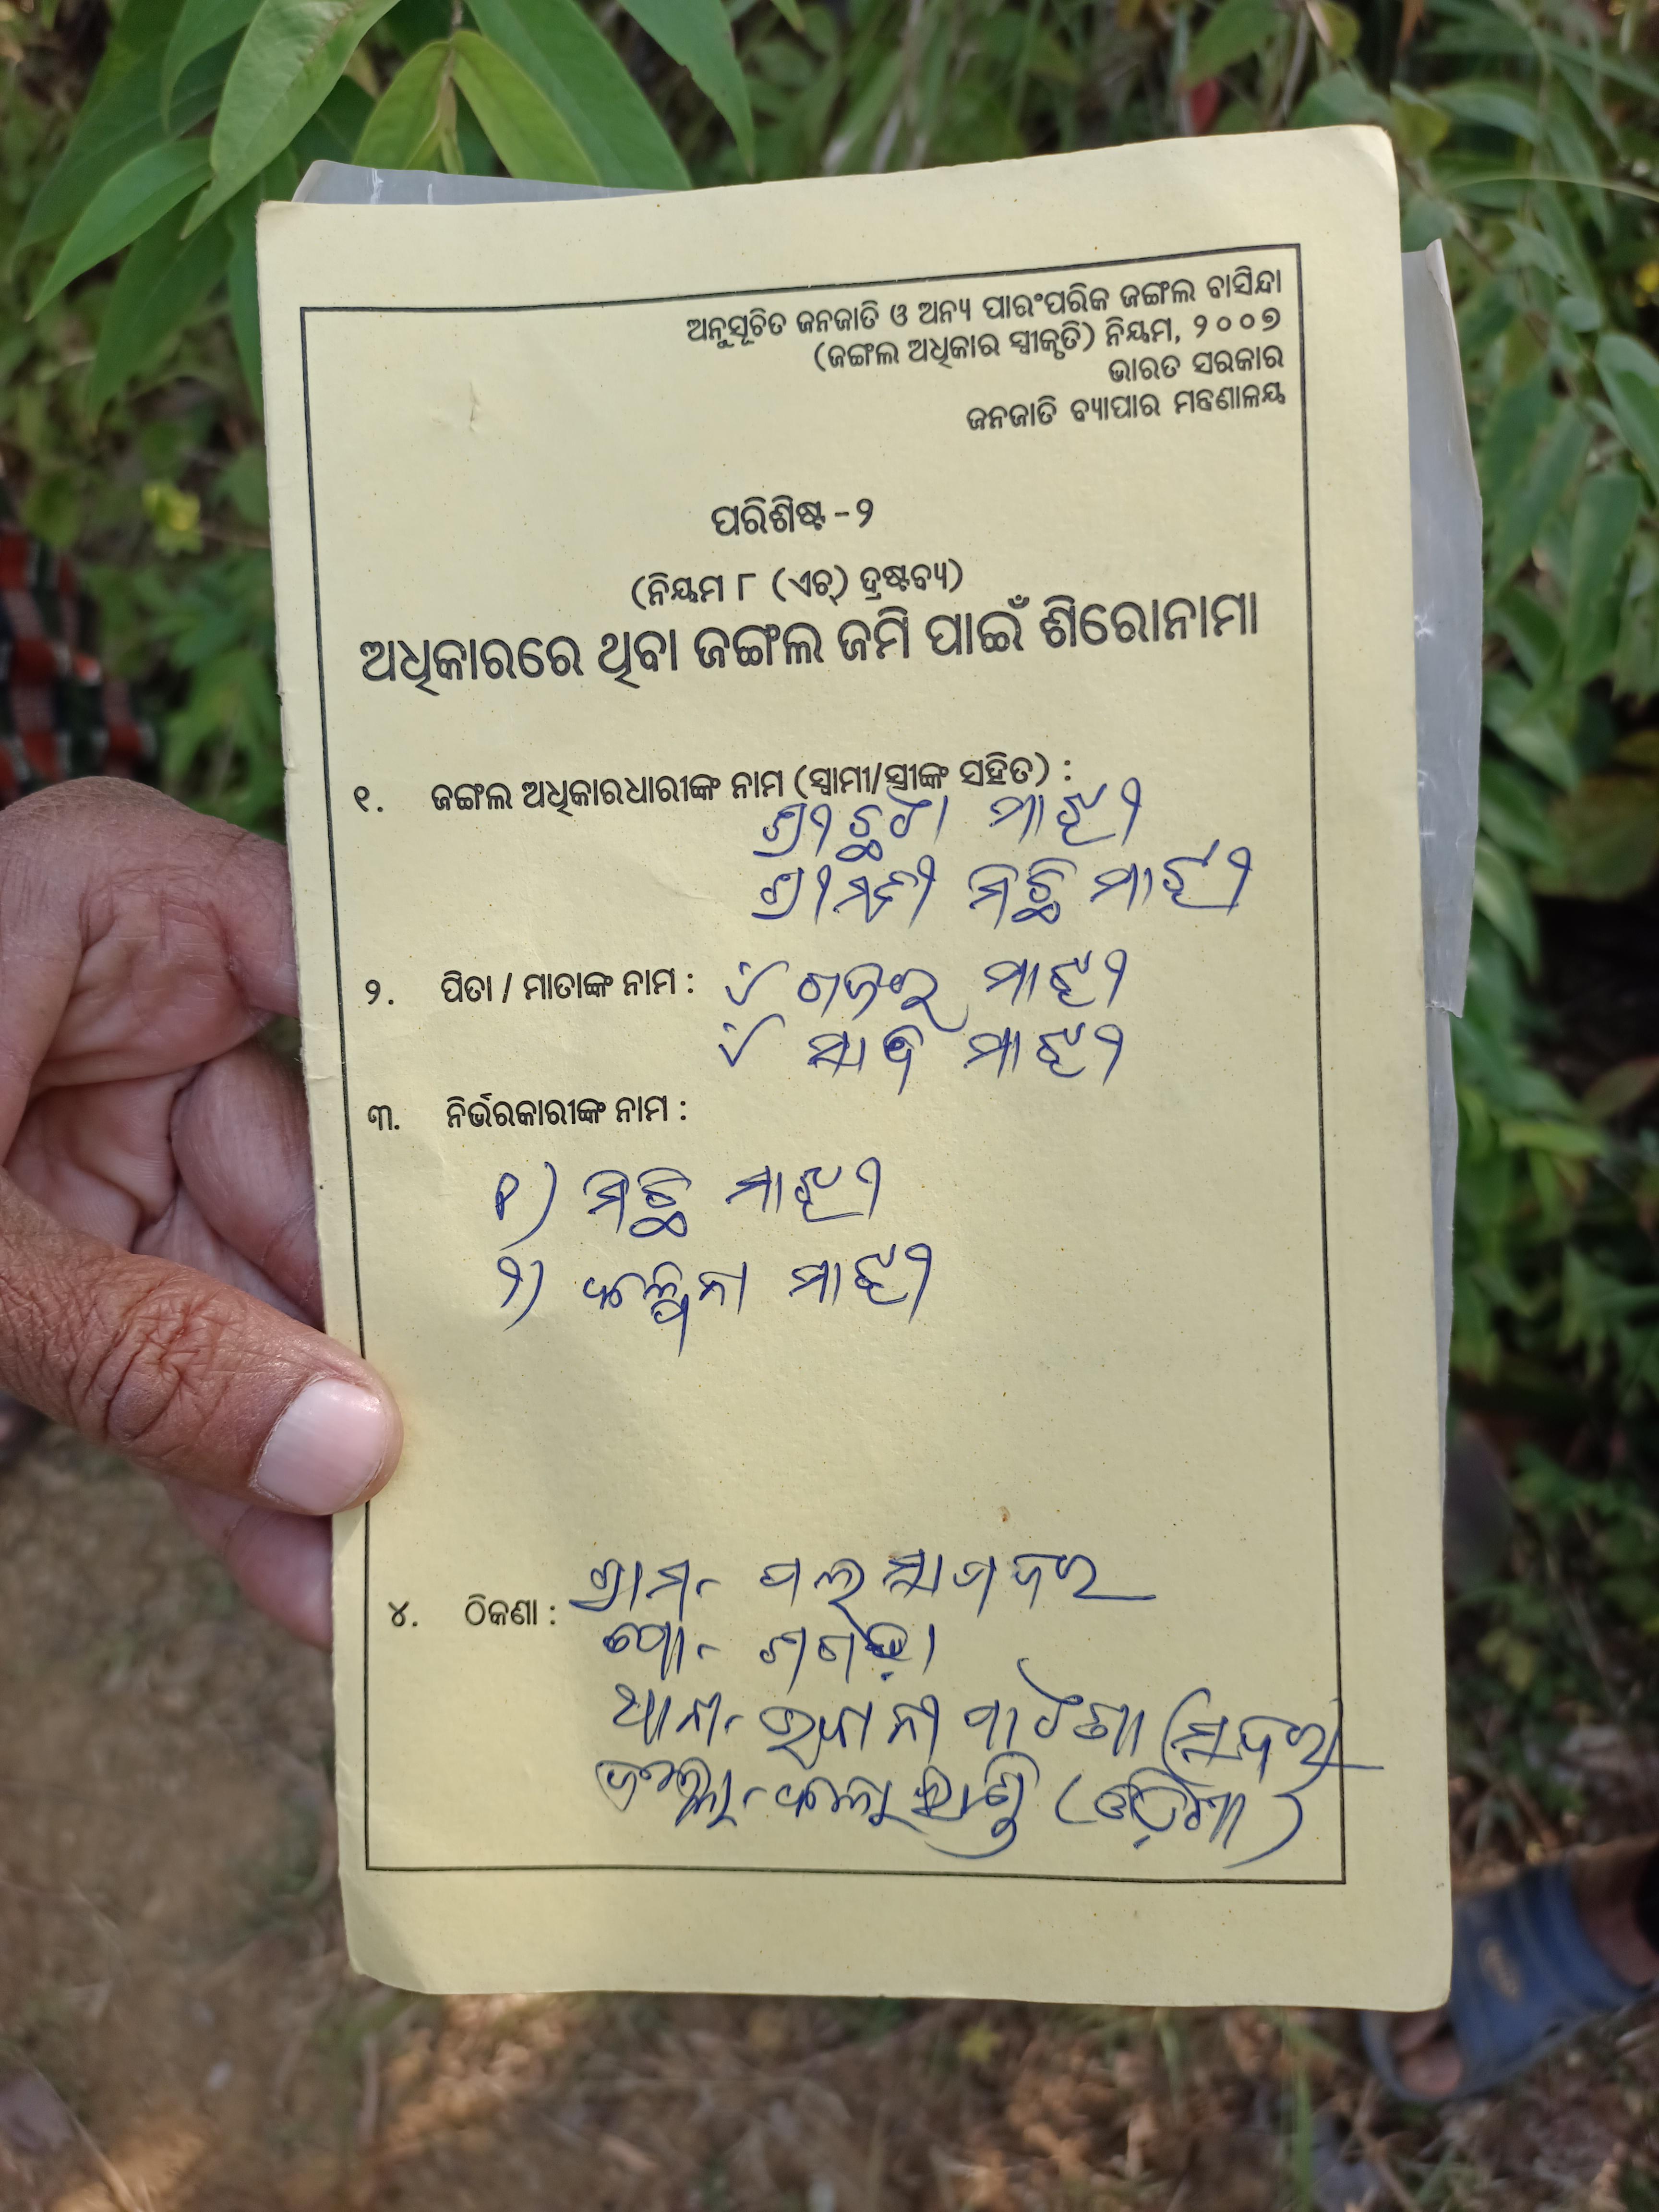 ଅନୁସୂଚିତ ଜନଜାତି ଓ ଅନ୍ୟ ପାରଂପରିକ ଜଙ୍ଗଲ ବାସିନ୍ଦା
(ଜଙ୍ଗଲ ଅଧିକାର ସ୍ୱୀକୃତି) ନିୟମ, ୨୦୦୭
ଭାରତ ସରକାର
ଜନଜାତି ବ୍ୟାପାର ମନ୍ତ୍ରଣାଳୟ
ପରିଶିଷ୍ଟ - ୨
(ନିୟମ ୮ (ଏଚ୍) ଦ୍ରଷ୍ଟବ୍ୟ)
ଅଧିକାରରେ ଥିବା ଜଙ୍ଗଲ ଜମି ପାଇଁ ଶିରୋନାମା
୧. ଜଙ୍ଗଲ ଅଧିକାରଧାରୀଙ୍କ ନାମ (ସ୍ୱାମୀ/ସ୍ତ୍ରୀଙ୍କ ସହିତ) :
ଶ୍ରୀ ମାଝୀ
ଶ୍ରୀମତୀ ମିଚ୍ଛି ମାଝୀ
୨. ପିତା / ମାତାଙ୍କ ନାମ : ମାଝୀ
ମାଝୀ
୩. ନିର୍ଭରକାରୀଙ୍କ ନାମ :
୧) ମିଚ୍ଛି ମାଝୀ
୨) କଳ୍ପନା ମାଝୀ
ଗ୍ରାମ-
୪. ଠିକଣା :
ପୋ-
ଥାନା- ଭବାନୀପାଟଣା (ସଦର)
ଜିଲ୍ଲା- କଳାହାଣ୍ଡି (ଓଡ଼ିଶା)